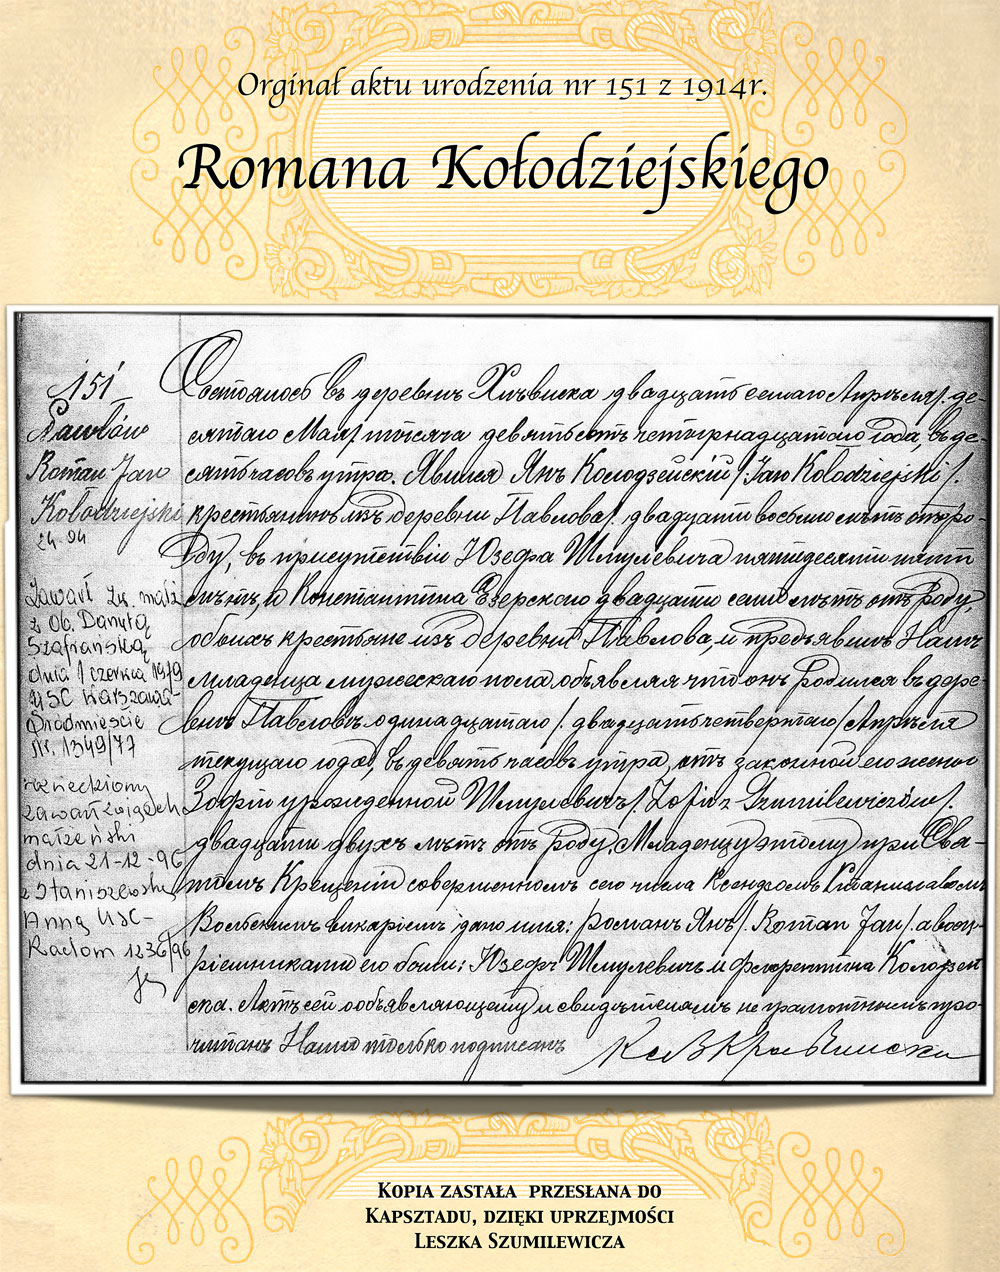 Orginał aktu urodzenia nr 151 z 1914r.
Romana Kołodziejskiego
151
Pawłów
Roman Jan
Kołodziejski
24 04
Zawarł zw. małż
z Ob. Danutą
Szafrańską
dnia 1 czerwca
USC Warszawa-
Śródmieście
Nr. 1349/77
zawarł związek
małżeński
dnia 21-12-96
z Staniszewską
Anną USC-
Radom 1236/96
Состоялось въ деревнѣ двадцать седьмаго Апрѣля /. де-
сятаго Мая / тысяча девятьсотъ четырнадцатаго года, въ де-
сять часовъ утра. Явился Янъ Колодзейскій /. Jan Kołodziejski /.
крестьянинъ изъ деревни Павлова /. двадцати восьми лѣтъ отъ ро-
Роду, въ присутствіи Юзефа Шмулевича пятидесяти пяти
лѣтъ, и Константина Езерского двадцати семи лѣтъ отъ Роду,
обоихъ крестьяне изъ деревни Павлова, и предъявилъ Намъ
младенца мужескаго пола, объявляя что онъ Родился въ дере-
внѣ Павловѣ одинадцатаго /. двадцать четвертаго / Апрѣля
текущаго года, въ девять часовъ утра, отъ законной его жены
Зофіи урожденной Шмулевичъ /. Zofii z Szmilewiczów /.
двадцати двухъ лѣтъ отъ Роду. Младенцу этому при Свя-
томъ Крещеніи совершенномъ сего числа Ксендзомъ Станиславомъ
викаріемъ дано имя: Романъ Янъ /. Roman Jan / а восп-
ріемниками его были: Юзефъ Шмулевичъ и Флорентина Колодзей-
ска. Актъ сей объявляющему и свидѣтелямъ неграмотнымъ про-
читанъ Нами только подписанъ
Kopia zastała przesłana do
Kapsztadu, dzięki uprzejmości
Leszka Szumilewicza